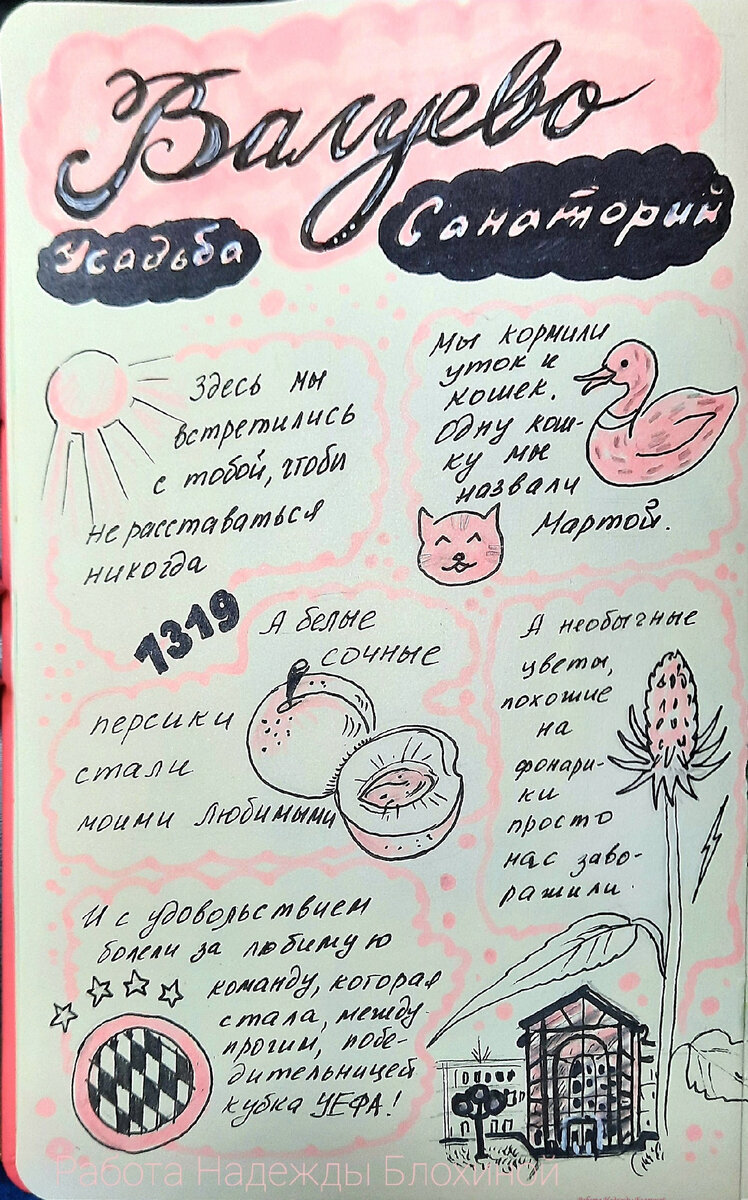 Валуево
Усадьба
Санаторий
Здесь мы
встретились
с тобой, чтобы
не расставаться
никогда
1319
Мы кормили
уток и
кошек.
Одну кош-
ку мы
назвали
Мартой.
А белые
сочные
персики
стали
моими любимыми
А необычные
цветы,
похожие
на
фонари-
ки
просто
нас заво-
ражили.
И с удовольствием
болели за любимую
команду, которая
стала, между
прочим, побе-
дительницей
кубка УЕФА!
Работа Надежды Блохиной